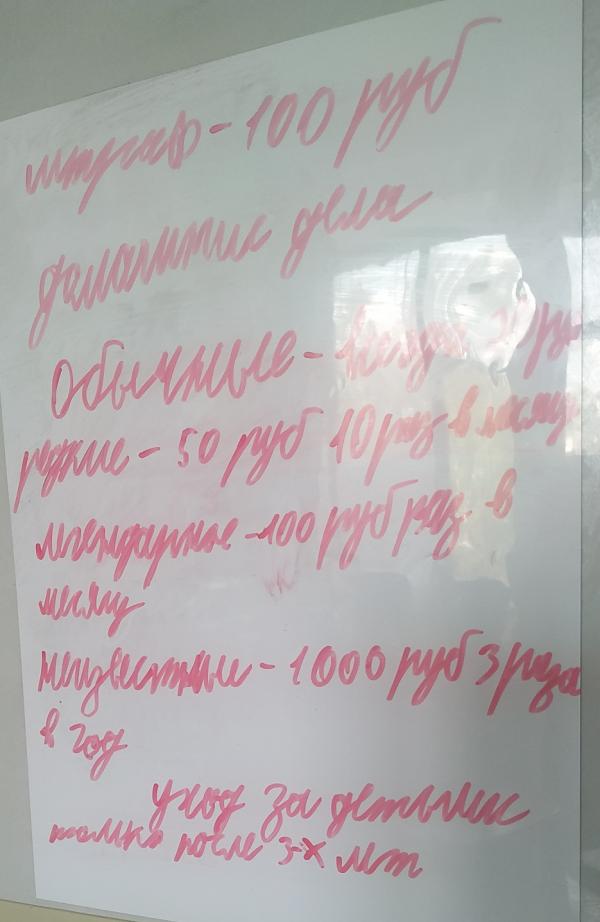 штраф - 100 руб
домашние дела
Обычные - всегда руб
редкие - 50 руб 10 раз в месяц
легендарные - 100 руб раз в
месяц
неизвестные - 1000 руб 3 раза
в год
уход за детьми
только после 3-х лет